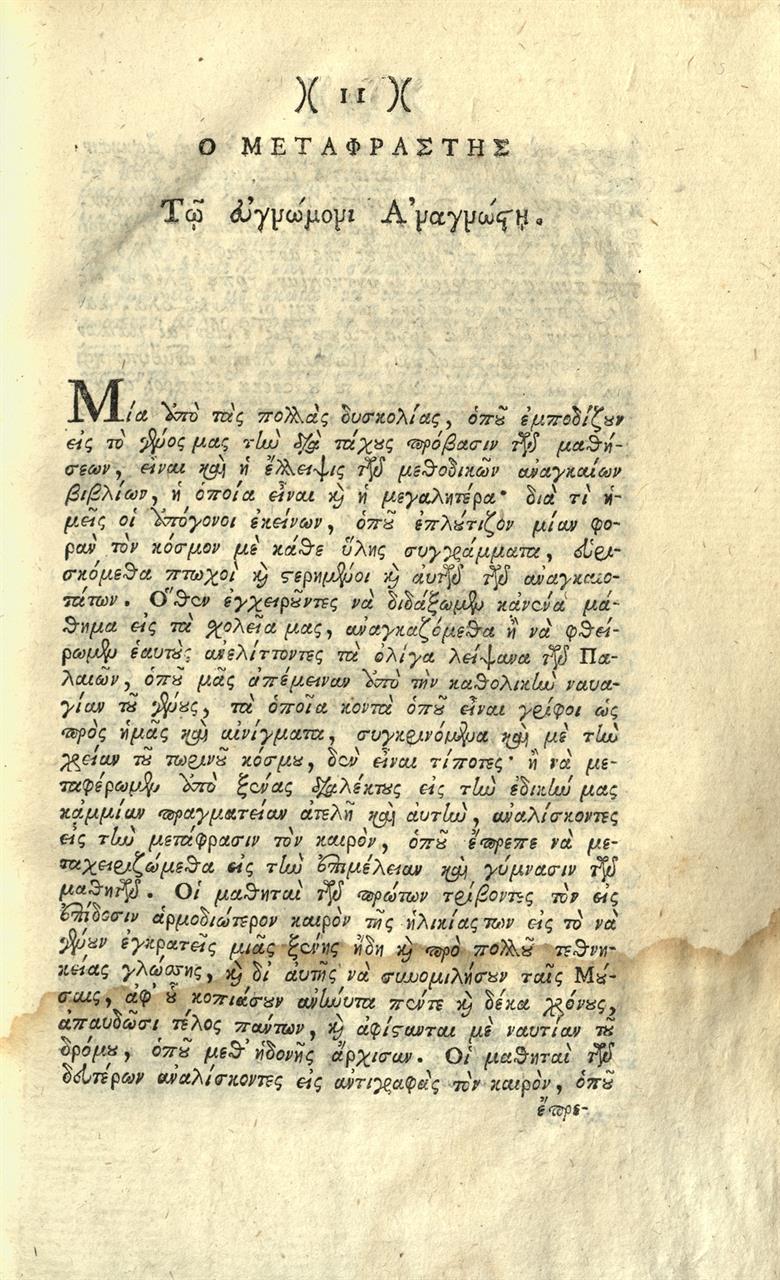 )( 11 )(
Ο ΜΕΤΑΦΡΑΣΤΗΣ
Τῷ εὐγνώμονι Ἀναγνώστῃ.
Μία ἀπὸ τὰς πολλὰς δυσκολίας, ὁποῦ ἐμποδίζουν
εἰς τὸ γένος μας τὴν διὰ τάχους πρόβασιν τῶν μαθή-
σεων, εἶναι καὶ ἡ ἔλλειψις τῶν μεθοδικῶν ἀναγκαίων
βιβλίων, ἡ ὁποία εἶναι καὶ ἡ μεγαλητέρα· διὰ τὶ ἡ-
μεῖς οἱ ἀπόγονοι ἐκείνων, ὁποῦ ἐπλούτιζον μίαν φο-
ρὰν τὸν κόσμον μὲ κάθε ὕλης συγγράμματα, εὑρι-
σκόμεθα πτωχοὶ καὶ στερημένοι καὶ αὐτῶν τῶν ἀναγκαιο-
τάτων. Ὅθεν ἐγχειροῦντες νὰ διδάξωμεν κᾀνένα μά-
θημα εἰς τὰ χολεῖα μας, ἀναγκαζόμεθα ἢ νὰ φθεί-
ρωμεν ἑαυτοὺς ἀνελίττοντες τὰ ὀλίγα λείψανα τῶν Πα-
λαιῶν, ὁποῦ μᾶς ἀπέμειναν ἀπὸ τὴν καθολικὴν ναυα-
γίαν τοῦ γένους, τὰ ὁποῖα κοντὰ ὁποῦ εἶναι γρίφοι ὡς
πρὸς ἡμᾶς καὶ αἰνίγματα, συγκρινόμενα καὶ μὲ τὴν
χρείαν τοῦ τωρινοῦ κόσμου, δὲν εἶναι τίποτες· ἢ νὰ με-
ταφέρωμεν ἀπὸ ξένας διαλέκτους εἰς τὴν ἐδικήν μας
κᾀμμίαν πραγματείαν ἀτελῆ καὶ αὐτὴν, ἀναλίσκοντες
εἰς τὴν μετάφρασιν τὸν καιρὸν, ὁποῦ ἔπρεπε νὰ με-
ταχειριζώμεθα εἰς τὴν ἐπιμέλειαν καὶ γύμνασιν τῶν
μαθητῶν. Οἱ μαθηταὶ τῶν πρώτων τρίβοντες τὸν εἰς
ἐπίδοσιν ἁρμοδιώτερον καιρὸν τῆς ἡλικίας των εἰς τὸ νὰ
γένουν ἐγκρατεῖς μιᾶς ξένης ἤδη καὶ πρὸ πολλοῦ τεθνη-
κείας γλώσσης, καὶ δι' αὐτῆς νὰ συνομιλήσουν ταῖς Μού-
σαις, ἀφ' οὗ κοπιάσουν ἀνήνυτα πέντε καὶ δέκα χρόνους,
ἀπαυδῶσι τέλος πάντων, καὶ ἀφίστανται μὲ ναυτίαν τοῦ
δρόμου, ὁποῦ μεθ' ἡδονῆς ἄρχισαν. Οἱ μαθηταὶ τῶν
δευτέρων ἀναλίσκοντες εἰς ἀντιγραφὰς τὸν καιρὸν, ὁποῦ
ἔπρε-